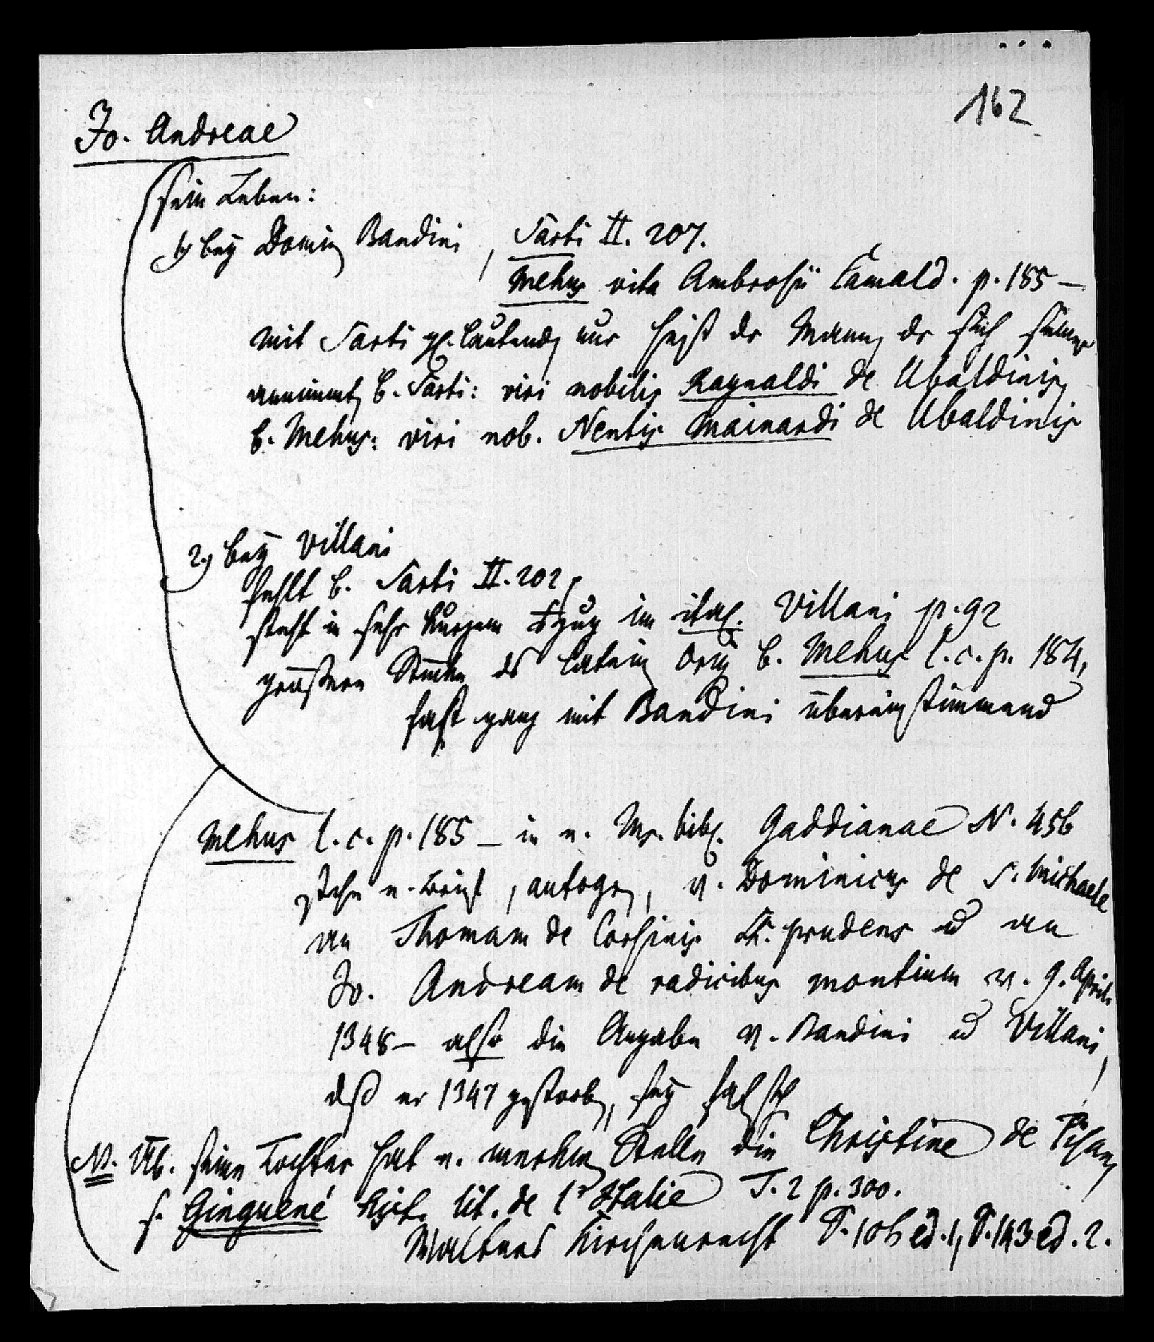 162
Jo. Andreae
sein Leben:
1) bey Domin. Bandini, Sarti II. 207.
Mehus vita Ambrosii Camald. p. 185 –
mit Sarti gl. lautend, nur heißt dr Mann, dr sich seiner
annimmt, b. Sarti: viri nobilis Raynaldi de Ubaldinis,
b. Mehus: viri nob. Nentis Mainardi de Ubaldinis
2.) bey Villani
fehlt b. Sarti II. 202,
steht in sehr kurzem Auszug im ital. Villani p. 92
größern Stücken ds latein. Orig. b. Mehus l. c. p. 184,
fast ganz mit Bandini übereinstimmend
Mehus l. c. p. 185 – in e. Ms. bibl. Gaddianae N. 456
stehn e. Brief, autogr., v. Dominicus de S. Michaele
an Thomam de Corsinis prudens u an
Jo. Andream de radicibus montium v. 9. April
1348 – also die Angabe v. Bandini u Villani,
dß er 1347 gestorb., sey falsch
N. Üb. seine Tochter hat e. merkw. Stelle die Christine de Pisan,
s. Ginguené hist. lit. de l'Italie T. 2 p. 300.
Walters Kirchenrecht S. 106 ed. 1, S. 143 ed. 2.